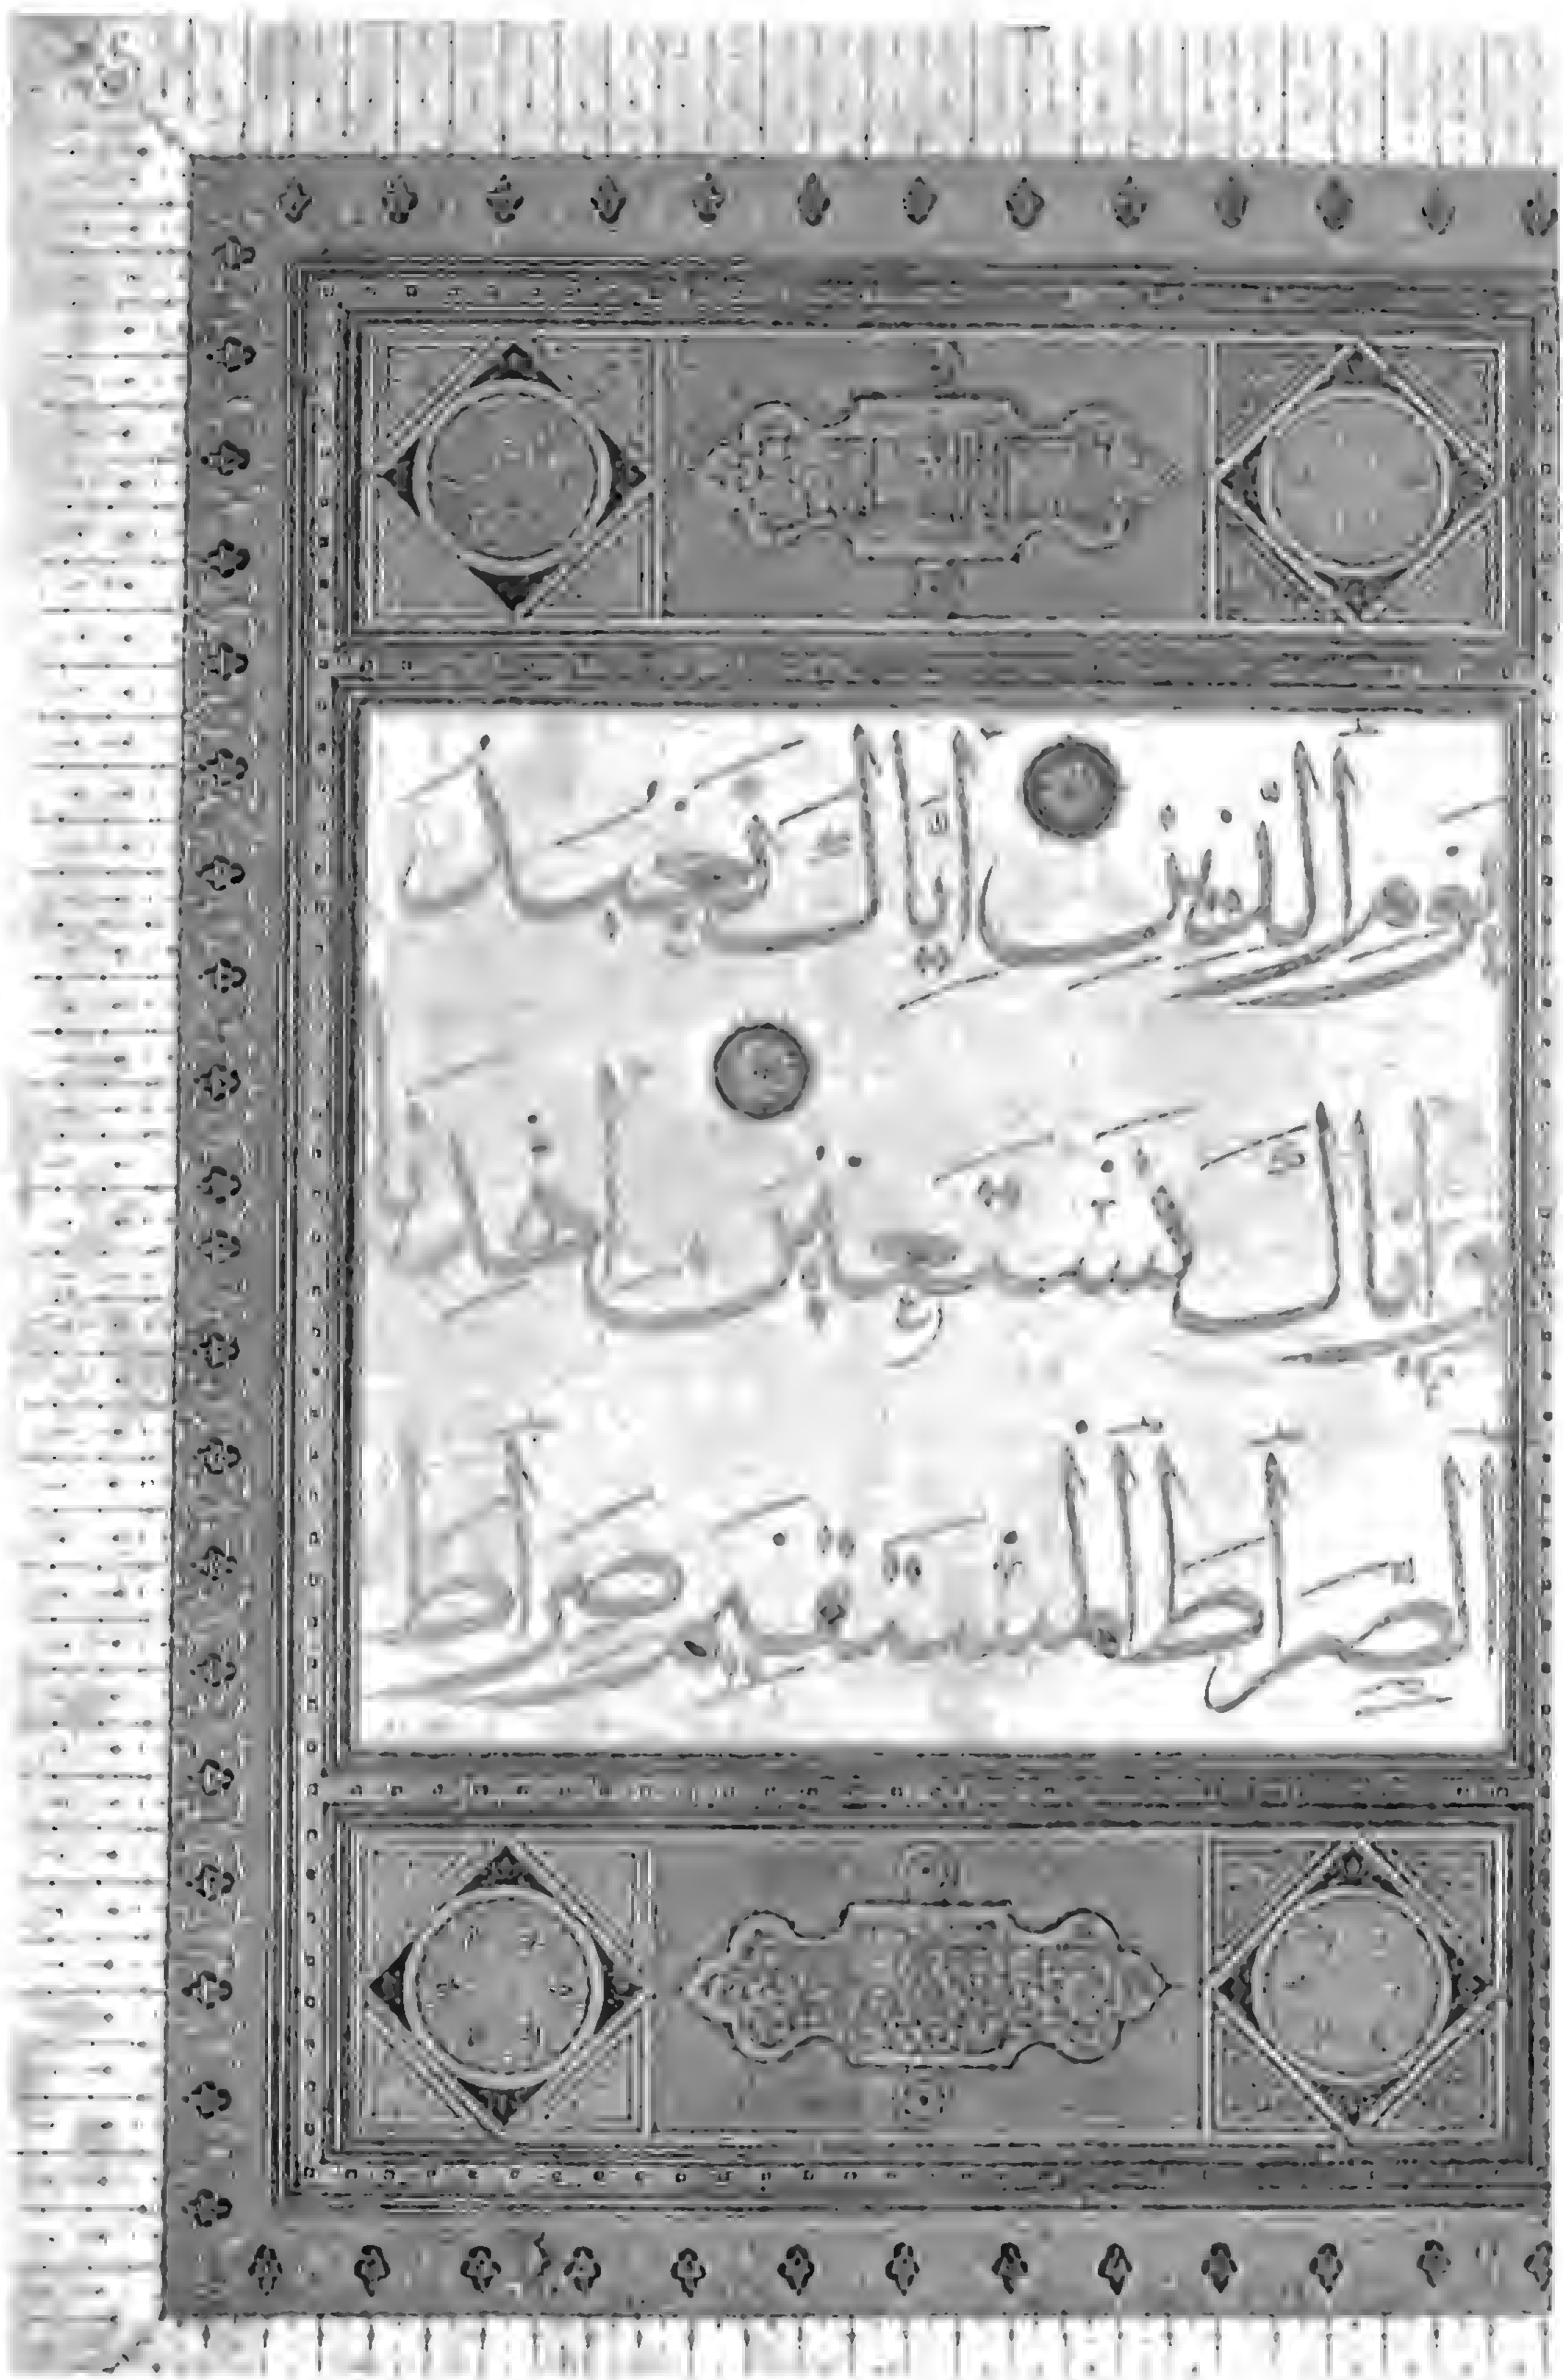 يَوْمِ الدِّينِ إِيَّاكَ نَعْبُدُ
وَإِيَّاكَ نَسْتَعِينُ اهْدِنَا
الصِّرَاطَ الْمُسْتَقِيمَ صِرَاطَ